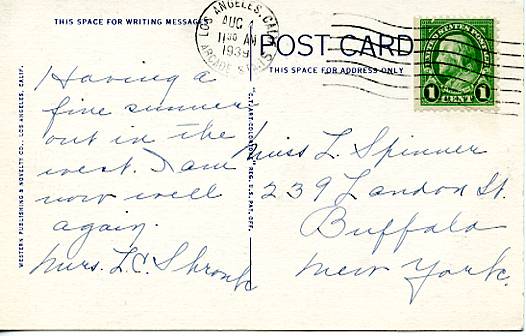 THIS SPACE FOR WRITING MESSAGES
LOS ANGELES, CALIF.
AUG 1
11 30 AM
1939
ARCADE STA.
POST CARD
THIS SPACE FOR ADDRESS ONLY
UNITED STATES POSTAGE
1 CENT 1
Having a
fine summer
out in the
west. I am
now well
again.
Mrs. L.C. Shronk
Miss L. Spinner
239 Landon St.
Buffalo
New York.
WESTERN PUBLISHING & NOVELTY CO., LOS ANGELES, CALIF.
"C.T. ART-COLORTONE" REG. U.S. PAT. OFF.